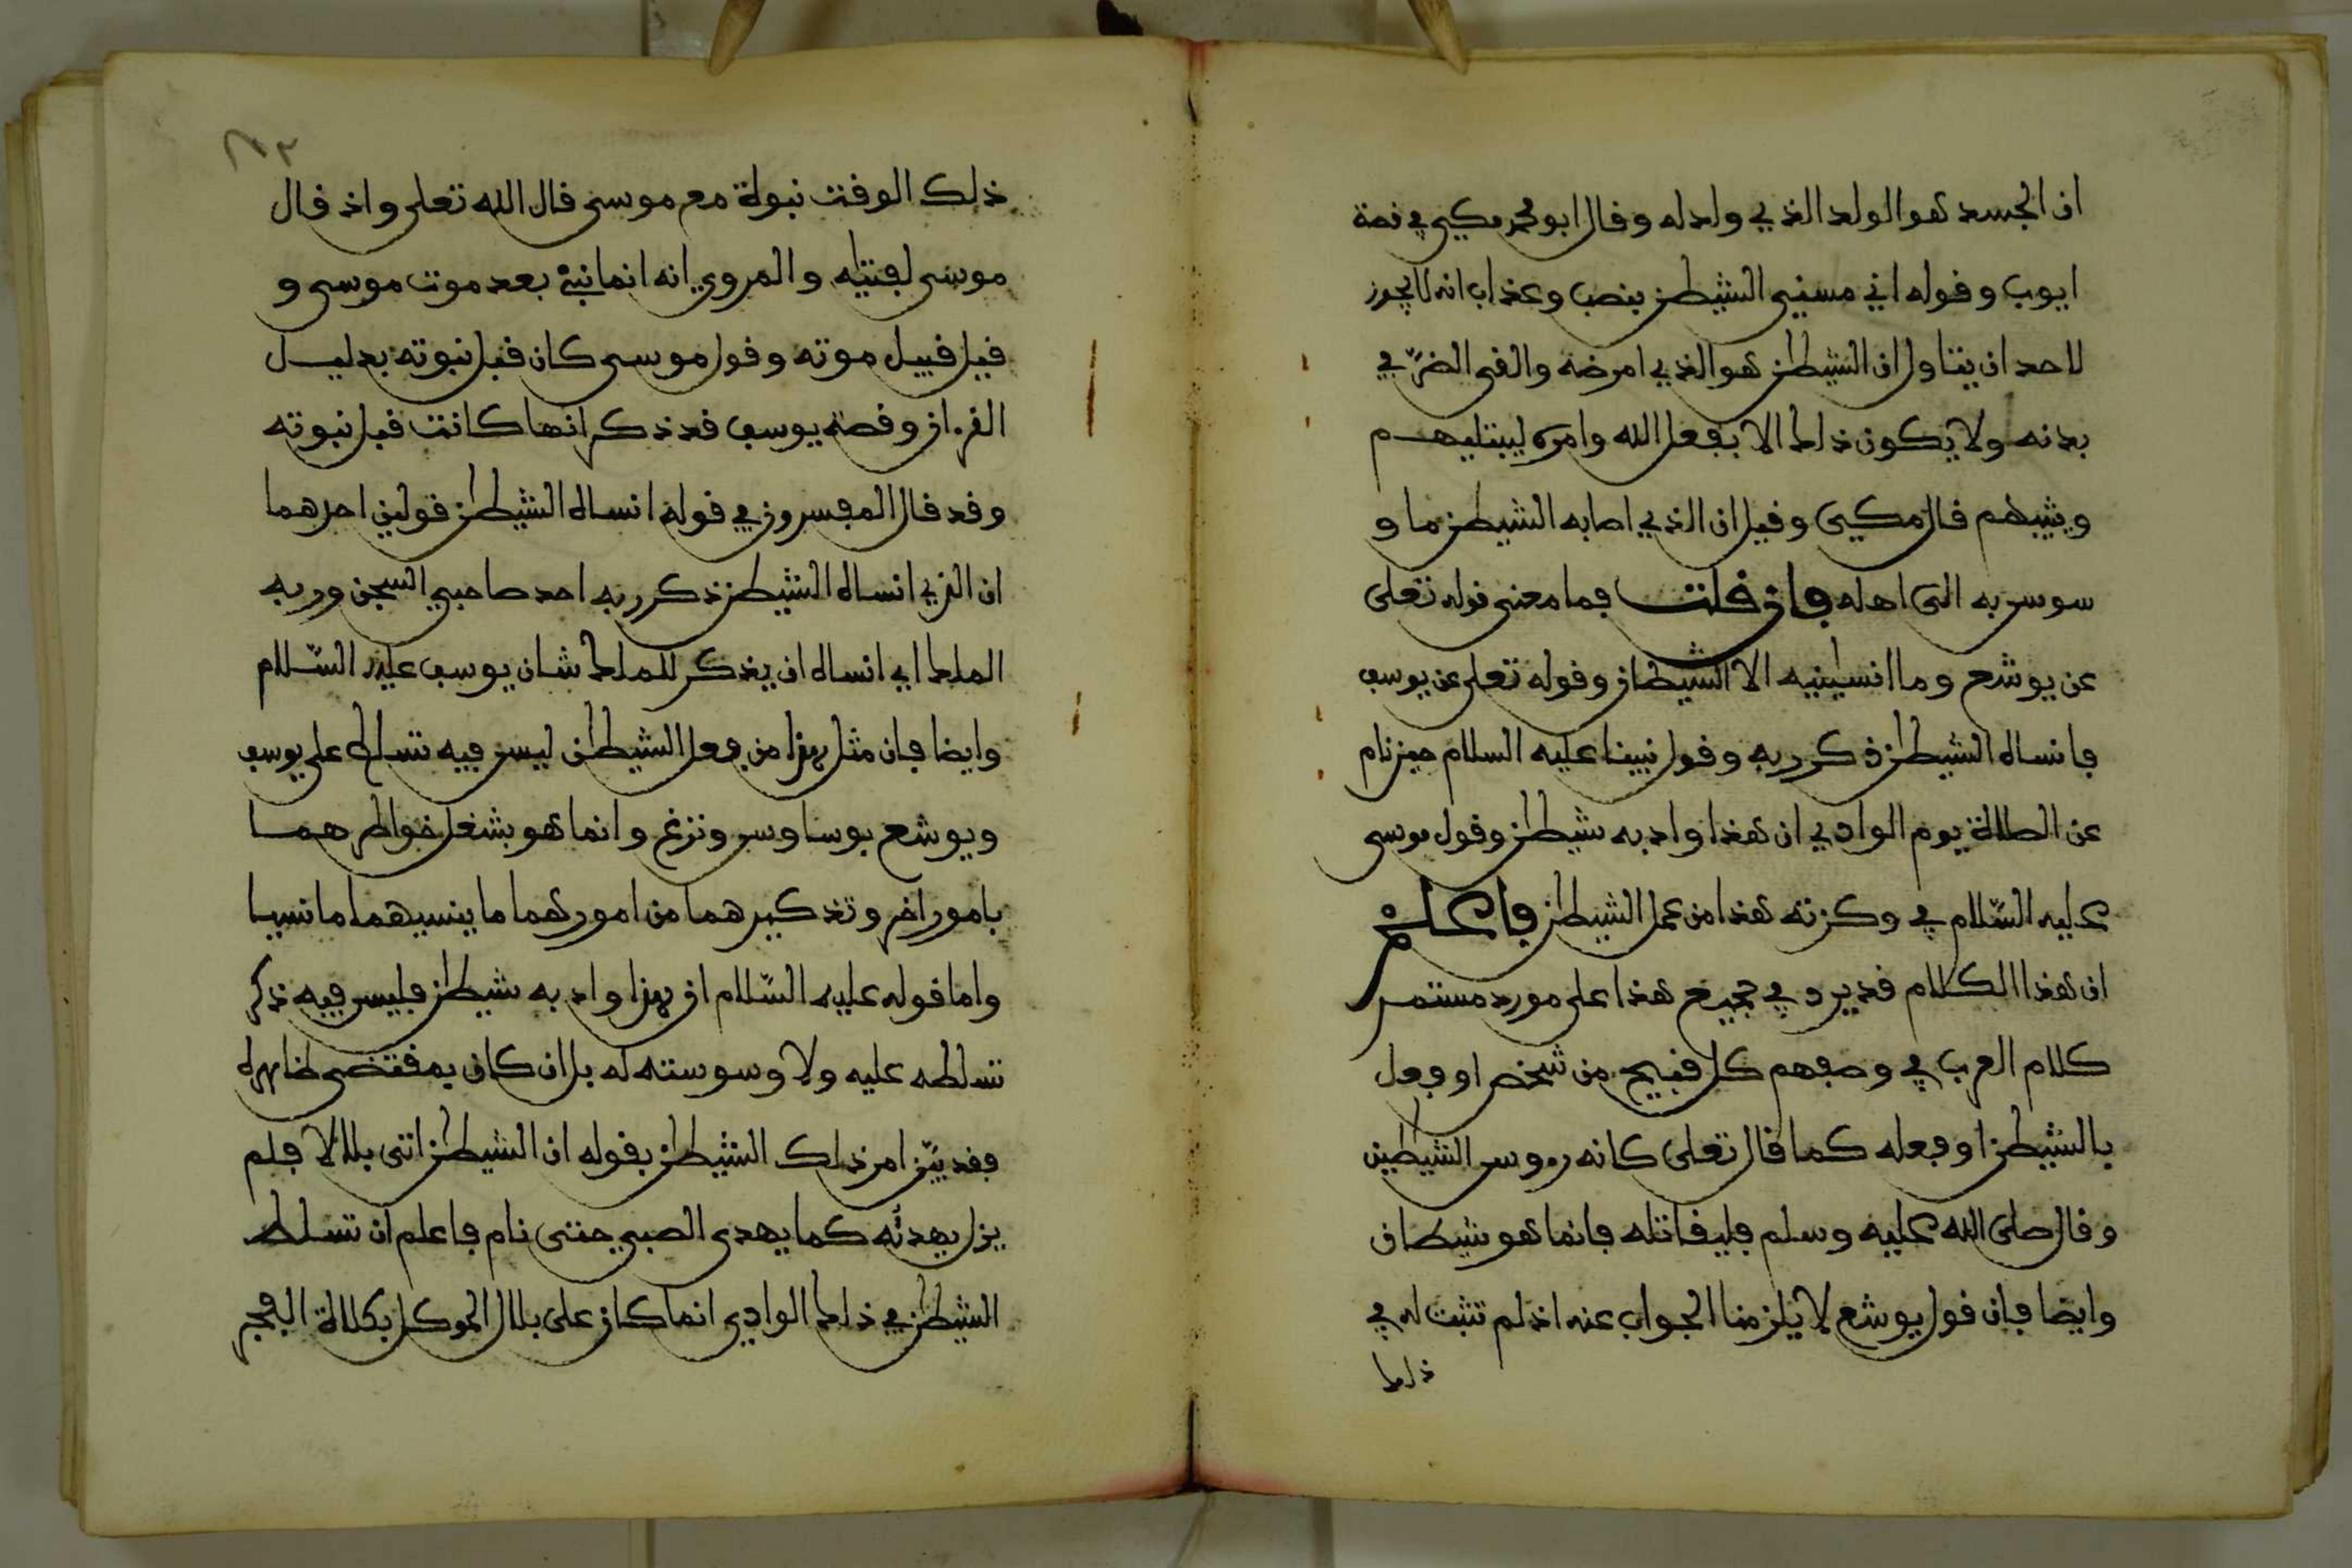 ان الجسد هو الولد الذي ولد له وقال ابو محمد مكي في قصة
ايوب وقوله اني مسني الشيطن بنصب وعذاب انه لا يجوز
لاحد ان يتاول ان الشيطن هو الذي امرضه والقى الضر في
بدنه ولا يكون ذلك الا بفعل الله وامره ليبتليهم
ويثيبهم قال مكي وقيل ان الذي اصابه الشيطن ما و
سوس به الى اهله فان قلت فما معنى قوله تعلى
عن يوشع وما انسينيه الا الشيطان وقوله تعلى عن يوسف
فانساه الشيطن ذكر ربه وقول نبينا عليه السلام حين نام
عن الصلاة يوم الوادي ان هذا واد به شيطن وقول موسى
عليه السلام في وكزته هذا من عمل الشيطن فاعلم
ان هذا الكلام قد يرد في جميع هذا على مورد مستمر
كلام العرب في وصفهم كل قبيح من شخص او فعل
بالشيطن او فعله كما قال تعلى كانه رءوس الشيطين
وقال صلى الله عليه وسلم فليقاتله فانما هو شيطان
وايضا فان قول يوشع لا يلزمنا الجواب عنه اذ لم تثبت له في
ذلك
ذلك الوقت نبوة مع موسى قال الله تعلى واذ قال
موسى لفتيه والمروي انه انما نبئ بعد موت موسى و
قيل قبيل موته وقول موسى كان قبل نبوته بدليل
القرءان وقصة يوسف قد ذكر انها كانت قبل نبوته
وقد قال المفسرون في قوله انساه الشيطن قولين احدهما
ان الذي انساه الشيطن ذكر ربه احد صاحبي السجن وربه
الملك اي انساه ان يذكر للملك شان يوسف عليه السلام
وايضا فان مثل هذا من فعل الشيطن ليس فيه تسلط على يوسف
ويوشع بوساوس ونزغ وانما هو بشغل خواطرهما
بامور اخر وتذكيرهما من امورهما ما ينسيهما ما نسيا
واما قوله عليه السلام ان هذا واد به شيطن فليس فيه ذكر
تسلطه عليه ولا وسوسته له بل ان كان بمقتضى ظاهره
فقد بين امر ذلك الشيطن بقوله ان الشيطن اتى بلالا فلم
يزل يهدئه كما يهدى الصبي حتى نام فاعلم ان تسلط
الشيطن في ذلك الوادي انما كان على بلال الموكل بكلاءة الفجر